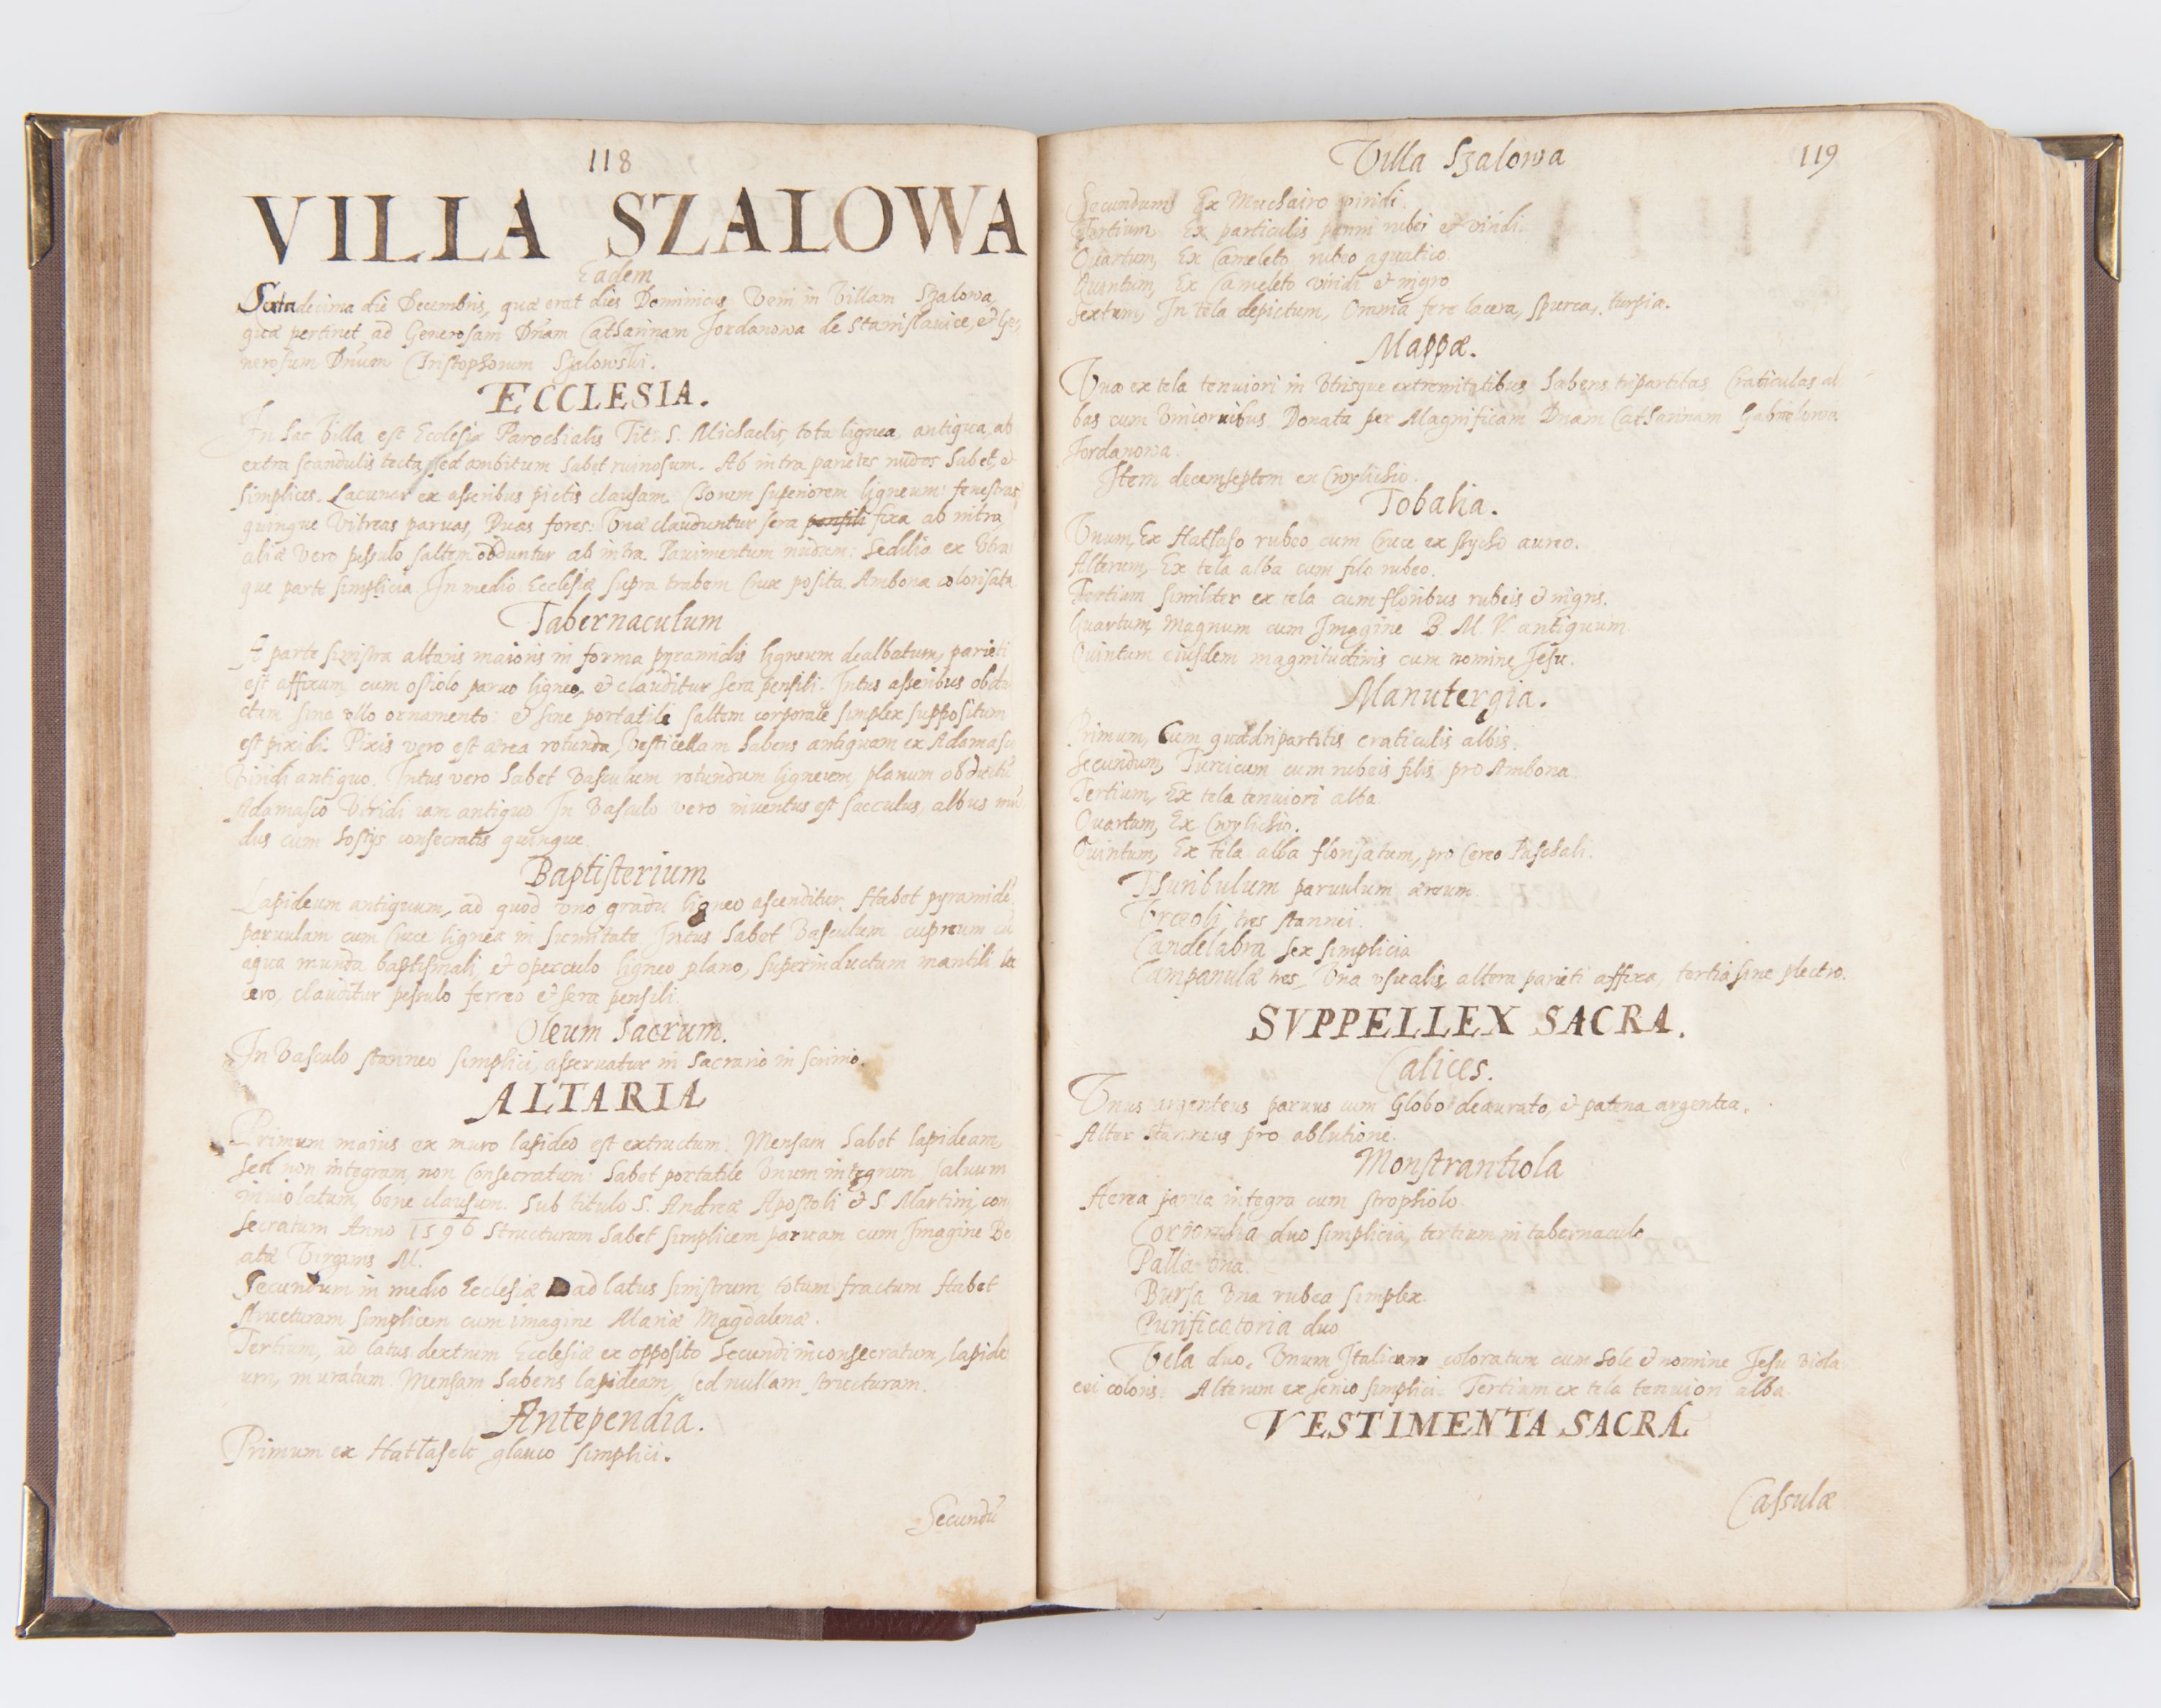 118
VILLA SZALOWA
Eadem
Sextadecima die Decembris, quæ erat dies Dominicus Veni in Villam Szalowa,
quæ pertinet ad Generosam Dnam Catharinam Jordanowa de Stanislavice, et Ge,
nerosum Dnum Christophorum Szalowski.
ECCLESIA.
In hac Villa est Ecclesia Parochialis Tit: S. Michaelis, tota lignea, antiqua, ab
extra scandulis tecta, sed ambitum habet ruinosum. Ab intra parietes nudos habet, et
simplices. Lacunar ex asseribus pictis clausam. Chorum superiorem ligneum: fenestras
quinque Vitreas paruas, Duas fores: Vna clauduntur sera pensili fixa ab intra,
aliæ vero pessulo saltem obduntur ab intra. Pauimentum nudum: Sedilia ex Vtra
que parte simplicia. In medio Ecclesiæ supra trabem Crux posita. Ambona colorisata
Tabernaculum
A parte sinistra altaris maioris in forma pyramidis ligneum dealbatum, parieti
est affixum, cum ostiolo paruo ligneo, et clauditur sera pensili. Intus asseribus obdu
ctum, sine vllo ornamento: et sine portatili saltem corporale simplex suppositum
est pixidi. Pixis vero est ærea rotunda, Vesticellam habens antiquam ex Adamasco
Viridi antiquo. Intus vero habet Vasculum rotundum ligneum, planum obductũ
Adamasco Viridi iam antiquo. In Vasculo vero inuentus est sacculus, albus mũ
dus cum hostijs consecratis quinque.
Baptisterium
Lapideum antiquum, ad quod vno gradu ligneo ascenditur. Habet pyramidẽ
paruulam cum Cruce lignea in summitate. Intus habet Vasculum cupreum cũ
aqua munda baptismali, et operculo ligneo plano, superinductum mantili la
cero, clauditur pessulo ferreo et sera pensili.
Oleum Sacrum.
In Vasculo stanneo simplici, asseruatur in Sacrario in scrinio.
ALTARIA
Primum maius ex muro lapideo est extructum. Mensam habet lapideam,
sed non integram, non consecratum: habet portatile Vnum integrum, saluum
inuiolatum, bene clausum. Sub titulo S. Andreæ Apostoli et S Martini, con
secratum Anno 1596 Structuram habet simplicem paruam cum Imagine Be
atæ Virginis M.
Secundum in medio Ecclesiæ ad latus sinistrum, totum fractum Habet
structuram simplicem cum imagine Mariæ Magdalenæ.
Tertium, ad latus dextrum Ecclesiæ ex opposito Secundi inconsecratum, lapide
um, muratum. Mensam habens lapideam, sed nullam structuram.
Antependia.
Primum ex Hatłaselt glauco simplici.
Secundũ
Villa Szalowa
119
Secundum, Ex Muchairo viridi.
Tertium, Ex particulis panni rubei et viridi.
Quartum, Ex Cameleto rubeo aquatico.
Quintum, Ex Cameleto viridi et nigro
Sextum, In tela depictum, Omnia fere lacera, spurca, turpia.
Mappæ.
Vna ex tela tenuiori in Vtrisque extremitatibus habens tripartitas Craticulas al
bas cum Vnicornibus. Donata per Magnificam Dnam Catharinam Gabrielowa
Jordanowa.
Item decemseptem ex Cwylichio.
Tobalia.
Vnum, Ex Hatłaso rubeo cum Cruce ex stycho aureo.
Alterum, Ex tela alba cum filo rubeo.
Tertium similiter ex tela cum floribus rubeis et nigris.
Quartum, magnum cum Imagine B. M. V. antiquum.
Quintum eiusdem magnitudinis cum nomine Jesu.
Manutergia.
Primum, Cum quadripartitis craticulis albis.
Secundum, Turcicum cum rubeis filis pro Ambona.
Tertium, Ex tela tenuiori alba.
Quartum, Ex Cwylichio.
Quintum, Ex tela alba florisatum, pro Cereo Paschali.
Thuribulum paruulum æreum.
Vrceoli tres stannei.
Candelabra sex simplicia
Campanulæ tres, Vna vsualis, altera parieti affixa, tertia sine plectro.
SVPPELLEX SACRA.
Calices.
Vnus argenteus paruus cum Globo deaurato, et patena argentea.
Alter Stanneus pro ablutione.
Monstrantiola
Aerea parua integra cum strophiolo.
Corporalia duo simplicia, tertium in tabernaculo
Palla vna.
Bursa Vna rubea simplex.
Purificatoria duo
Vela duo. Vnum Italicum coloratum cum Sole et nomine Jesu viola
cei coloris. Alterum ex serico simplici. Tertium ex tela tenuiori alba.
VESTIMENTA SACRA
Cassulæ